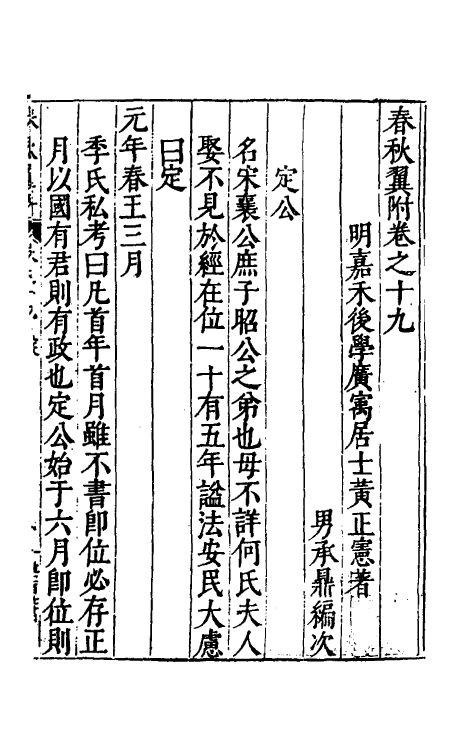 春秋翼附卷之十九
明嘉禾後學廣寓居士黃正憲著
男承鼎編次
定公
名宋襄公庶子昭公之弟也母不詳何氏夫人
娶不見於經在位一十有五年謚法安民大慮
曰定
元年春王三月
季氏私考曰凡首年首月雖不書即位必存正
月以國有君則有政也定公始于六月即位則